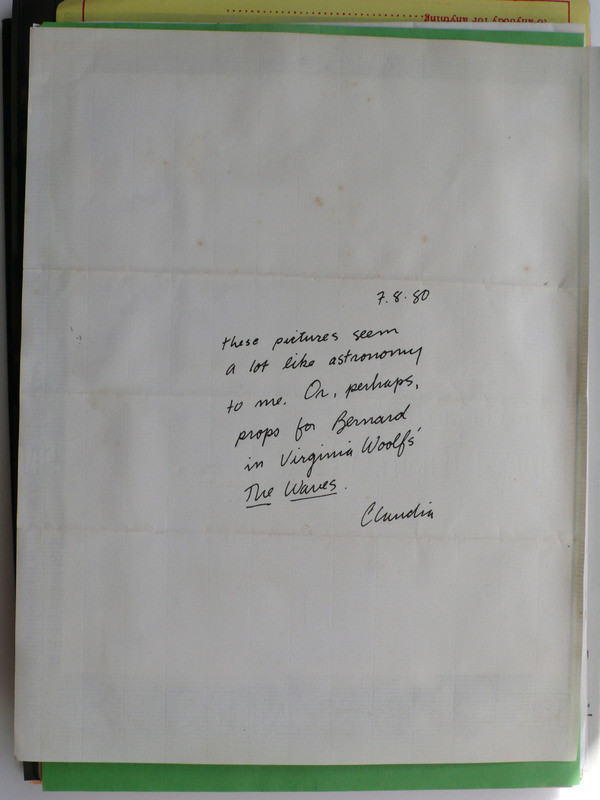 to anybody for anything.
7.8.80
these pictures seem
a lot like astronomy
to me. Or, perhaps,
props for Bernard
in Virginia Woolfs'
The Waves.
Claudia